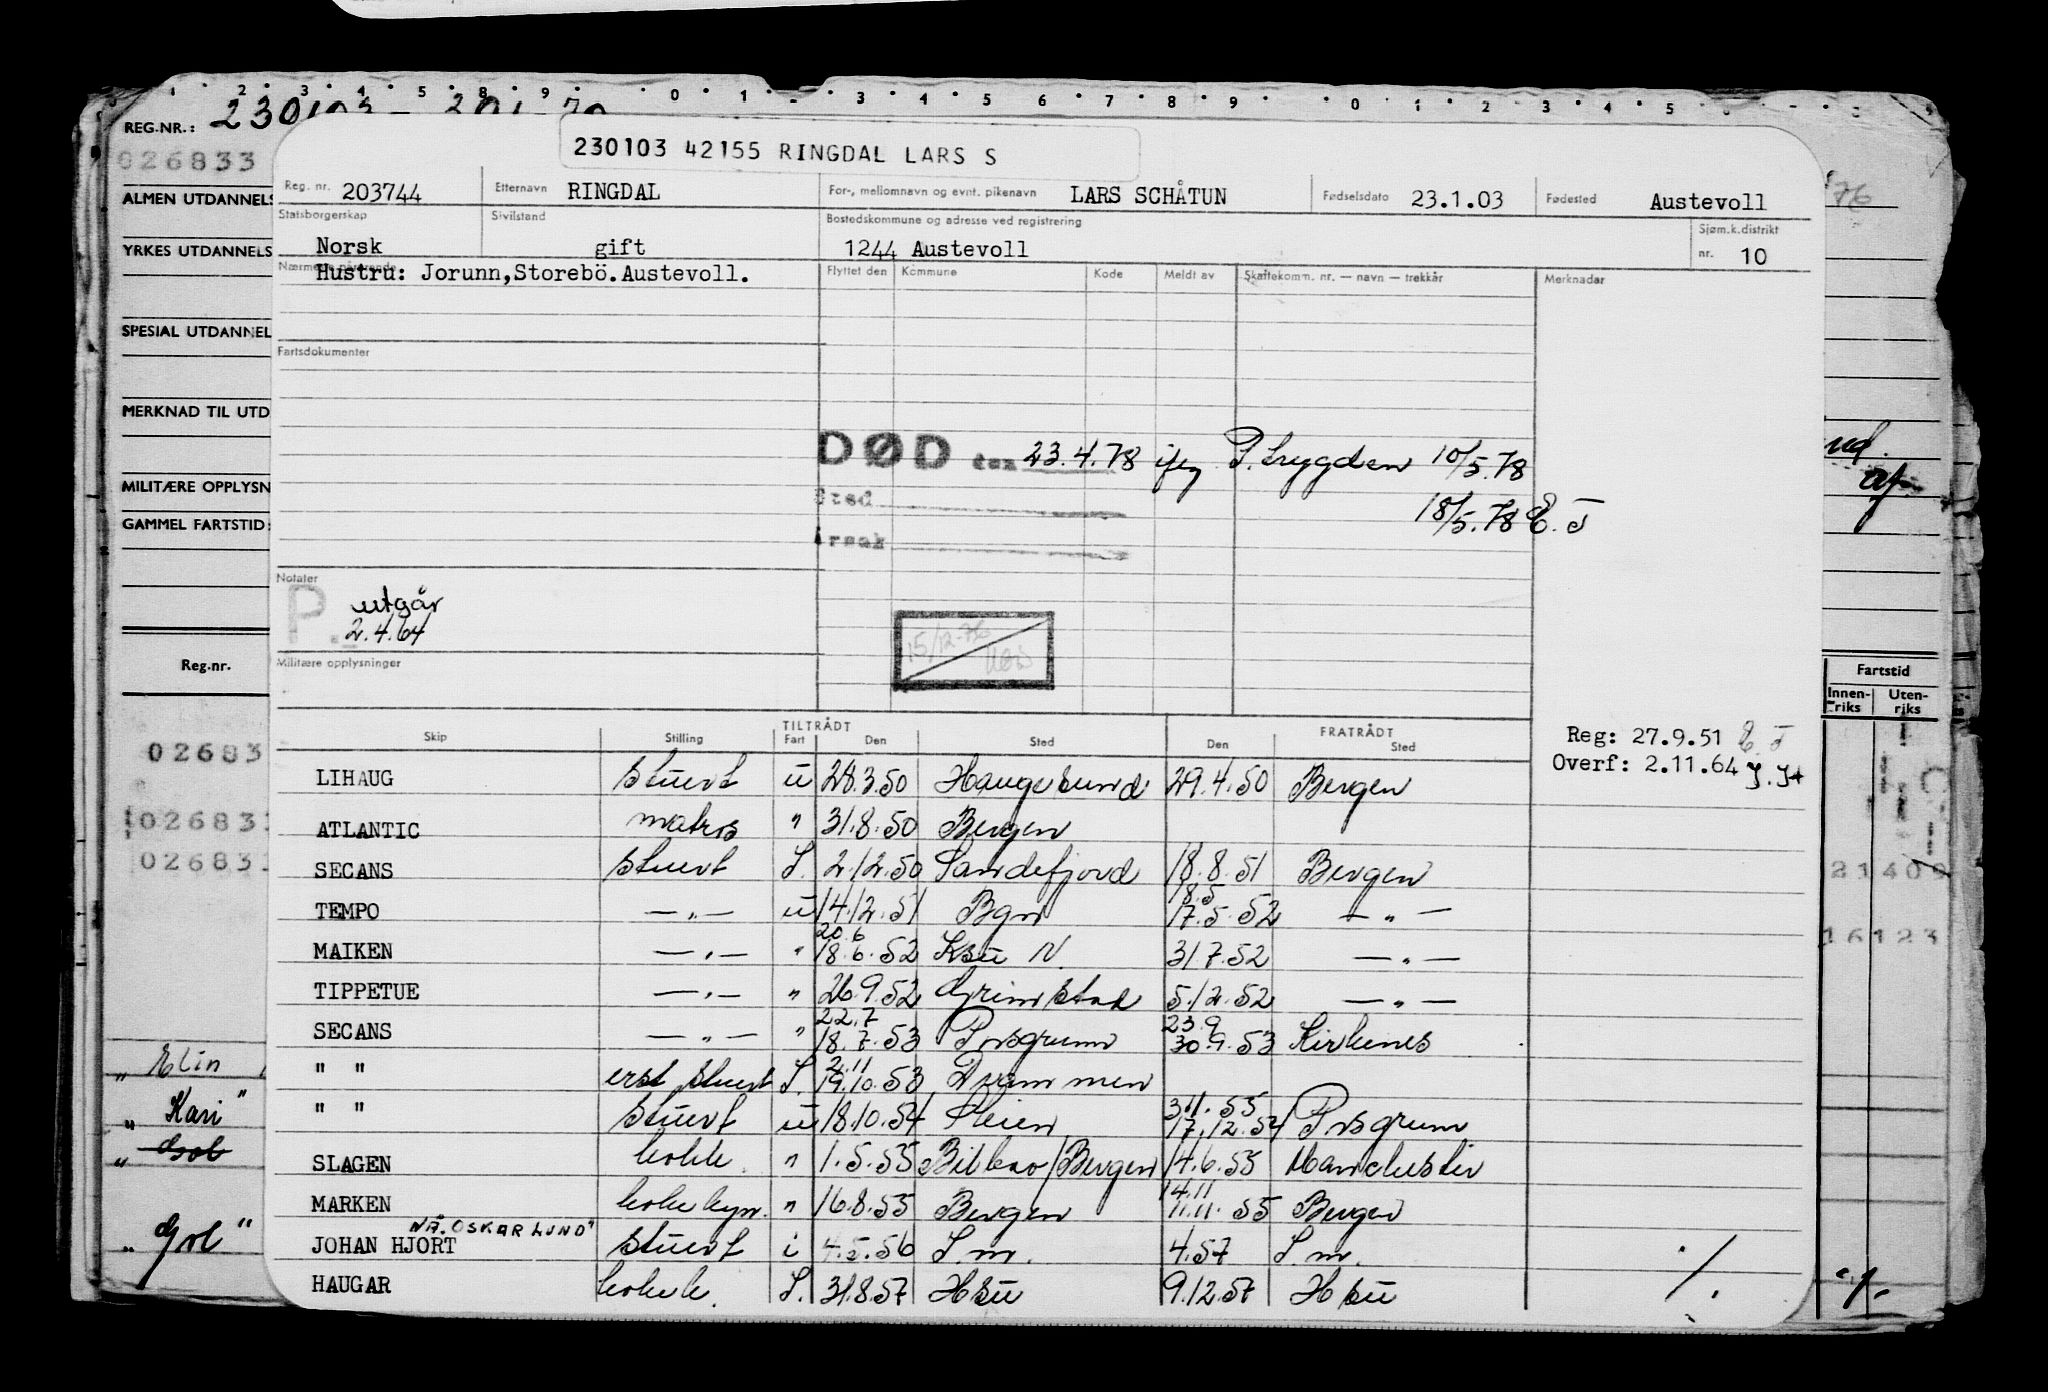 REG.NR.:
026833
ALMEN UTDANNELS
YRKES UTDANNELS
SPESIAL UTDANNEL
MERKNAD TIL UTD
MILITÆRE OPPLYSN
GAMMEL FARTSTID:
Reg.nr.
02683
026833
026833
" Elin
" Kari"
" Gol"
230103 42155 RINGDAL LARS S
Reg. nr. 203744 Etternavn RINGDAL For-, mellomnavn og evnt. pikenavn LARS SCHÅTUN Fødselsdato 23.1.03 Fødested Austevoll
Statsborgerskap Sivilstand Bostedskommune og adresse ved registrering Sjøm.k.distrikt
Norsk gift 1244 Austevoll nr. 10
Nærmeste pårørende Flyttet den Kommune Kode Meldt av Skattekomm. nr. — navn — trekkår Merknader
Hustru: Jorunn,Storebö.Austevoll.
Fartsdokumenter
DØD den 23.4.78 iføg P.trygden 10/5.78
Sted 18/5.78 E.T
Årsak
Notater
P. utgår
2.4.64
15/12-76
Militære opplysninger
Fartstid
Innen-riks Uten-riks
TILTRÅDT FRATRÅDT
Skip Stilling Fart Den Sted Den Sted
Reg: 27.9.51 E.T
Overf: 2.11.64
LIHAUG stuert u 28.3.50 Haugesund 29.4.50 Bergen
ATLANTIC matros " 31.8.50 Bergen
SECANS stuert S. 2.12.50 Sandefjord 18.8.51 Bergen
TEMPO —"— u 14.12.51 Bgn 18.5 17.5.52 —"—
MAIKEN —"— " 20.6 18.6.52 Ksu N. 31.7.52 —"—
TIPPETUE —"— " 26.9.52 Grimstad 5.12.52 —"—
SECANS —"— " 22.7 18.7.53 Porsgrunn 23.9 30.9.53 Kirkenes
" " erst. stuert S. 2.11 19.10.53 Drammen
" " stuert u 18.10.54 Skien 3.1.55 17.12.54 Porsgrunn
SLAGEN kokk " 1.5.55 Bilbao/Bergen 14.6.55 Manchester
MARKEN " 16.8.55 Bergen 14.11 11.11.55 Bergen
NÅ. "OSKAR LUND"
JOHAN HJORT stuert i 4.5.56 S.m. 4.57 S.m.
HAUGAR S. 31.8.57 Hsu 9.12.57 Hsu
21409
16123